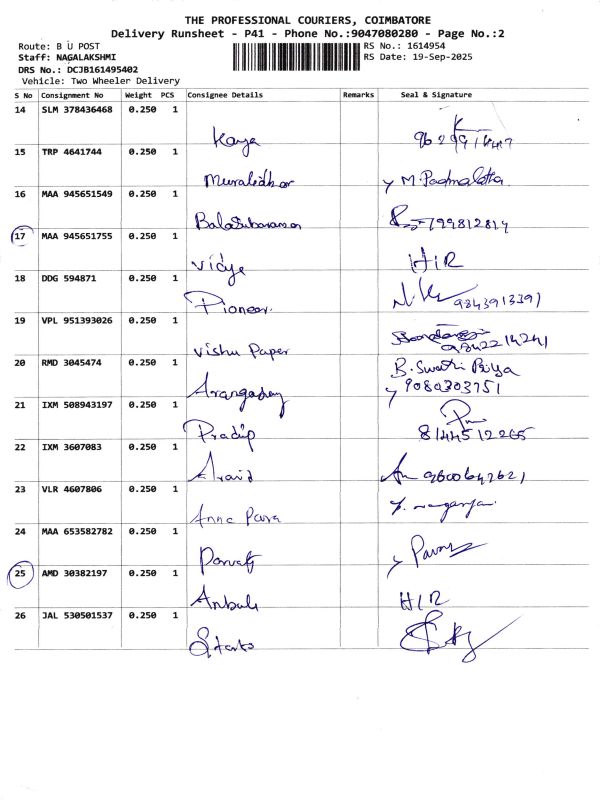 THE PROFESSIONAL COURIERS, COIMBATORE
Delivery Runsheet - P41 - Phone No.:9047080280 - Page No.:2
Route: B U POST RS No.: 1614954
Staff: NAGALAKSHMI RS Date: 19-Sep-2025
DRS No.: DCJB161495402
Vehicle: Two Wheeler Delivery
S No Consignment No Weight PCS Consignee Details Remarks Seal & Signature
14 SLM 378436468 0.250 1
Kavya
15 TRP 4641744 0.250 1
Muralidhar M. Padmalatha
16 MAA 945651549 0.250 1
Balasubaraman 799812814
17 MAA 945651755 0.250 1
Vidye H/R
18 DDG 594871 0.250 1
Pioneer 9843913391
19 VPL 951393026 0.250 1
Vishu Paper 9842214241
20 RMD 3045474 0.250 1 B. Swathi Priya
9080303751
21 IXM 508943197 0.250 1
Pradip 8144512265
22 IXM 3607083 0.250 1
Aravid 9600647621
23 VLR 4607806 0.250 1
24 MAA 653582782 0.250 1
25 AMD 30382197 0.250 1
H/R
26 JAL 530501537 0.250 1